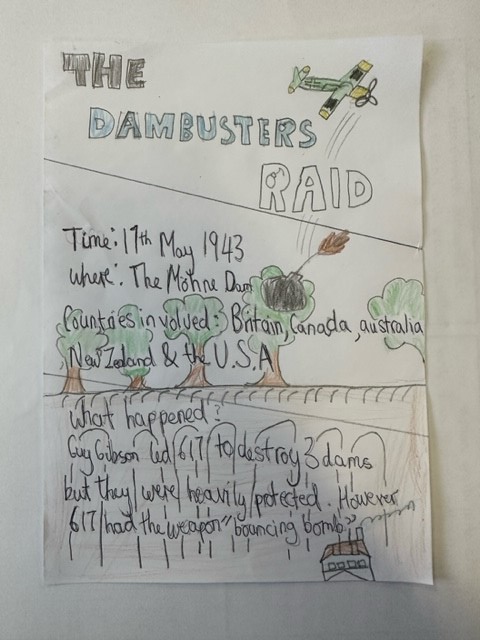 THE
DAMBUSTERS
RAID
Time: 17th May 1943
where: The Möhne Dam
Countries involved: Britain, Canada, australia
New Zealand & the U.S.A
What happened?
Guy Gibson led 617 to destroy 3 dams
but they were heavily protected. However
617 had the weapon "bouncing bomb"